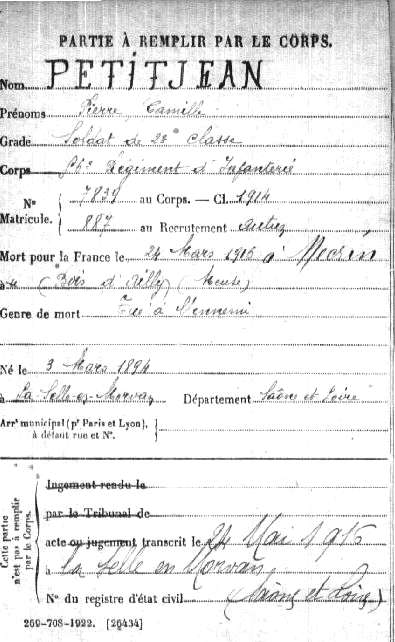 PARTIE À REMPLIR PAR LE CORPS.
Nom PETITJEAN
Prénoms Pierre Camille
Grade Soldat de 2e classe
Corps Régiment d'Infanterie
No Matricule. 7839 au Corps. — Cl. 1914
887 au Recrutement
Mort pour la France le 24 Mars 1915 à Mecrin
à (Bois d'Ailly) (Meuse)
Genre de mort Tué à l'ennemi
Né le 3 Mars 1894
à La Selle-en-Morvan Département Saône et Loire
Arrt municipal (pr Paris et Lyon),
à défaut rue et No.
Cette partie n'est pas à remplir par le Corps.
Jugement rendu le
par le Tribunal de
acte ou jugement transcrit le 24 Mai 1915
à La Selle en Morvan
No du registre d'état civil (Saône et Loire)
269-708-1922. [26434]